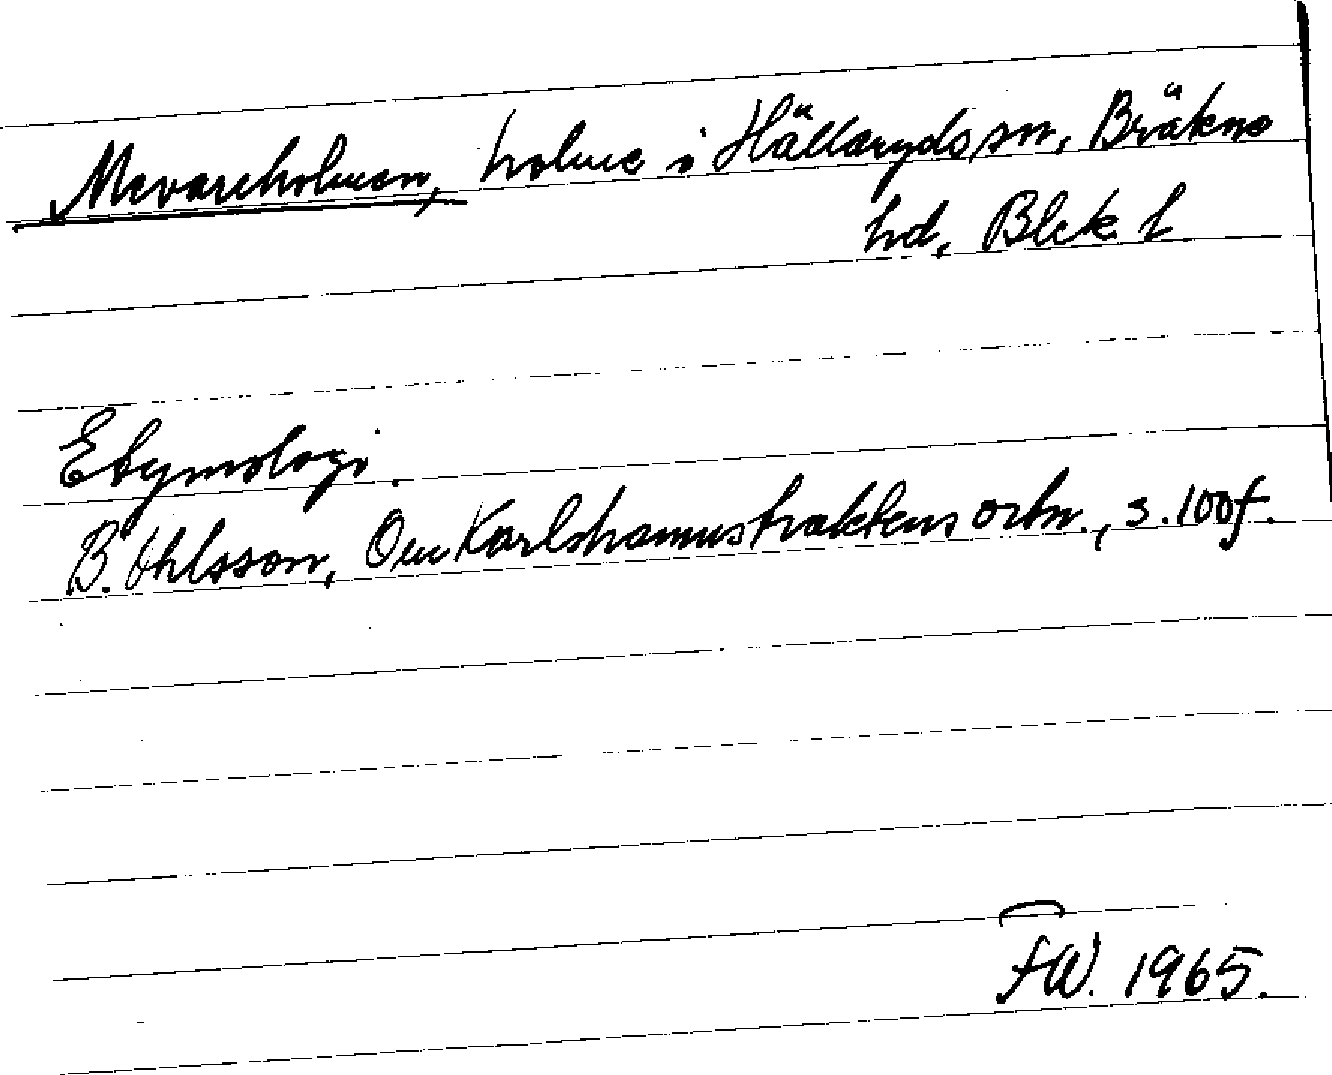 Mevareholmen, holme i Hällaryds sn, Bräkne
hd, Blek. l
Etymologi.
B. Ohlsson, Om Karlshamnstraktens ortn., s. 100 f.
FW. 1965.